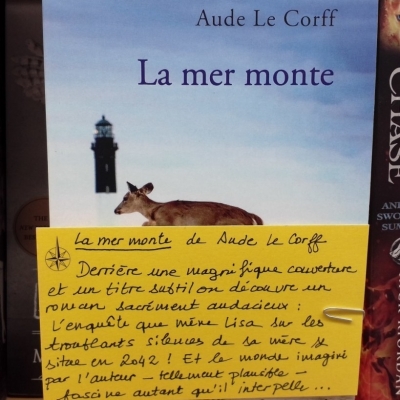 Aude Le Corff
La mer monte
La mer monte de Aude Le Corff
Derrière une magnifique couverture
et un titre subtil on découvre un
roman sacrément audacieux :
L'enquête que mène Lisa sur les
troublants silences de sa mère se
situe en 2042 ! Et le monde imaginé
par l'auteur — tellement plausible —
fascine autant qu'il interpelle...
CHASE
AND
SWO
SUM
RIORDAN